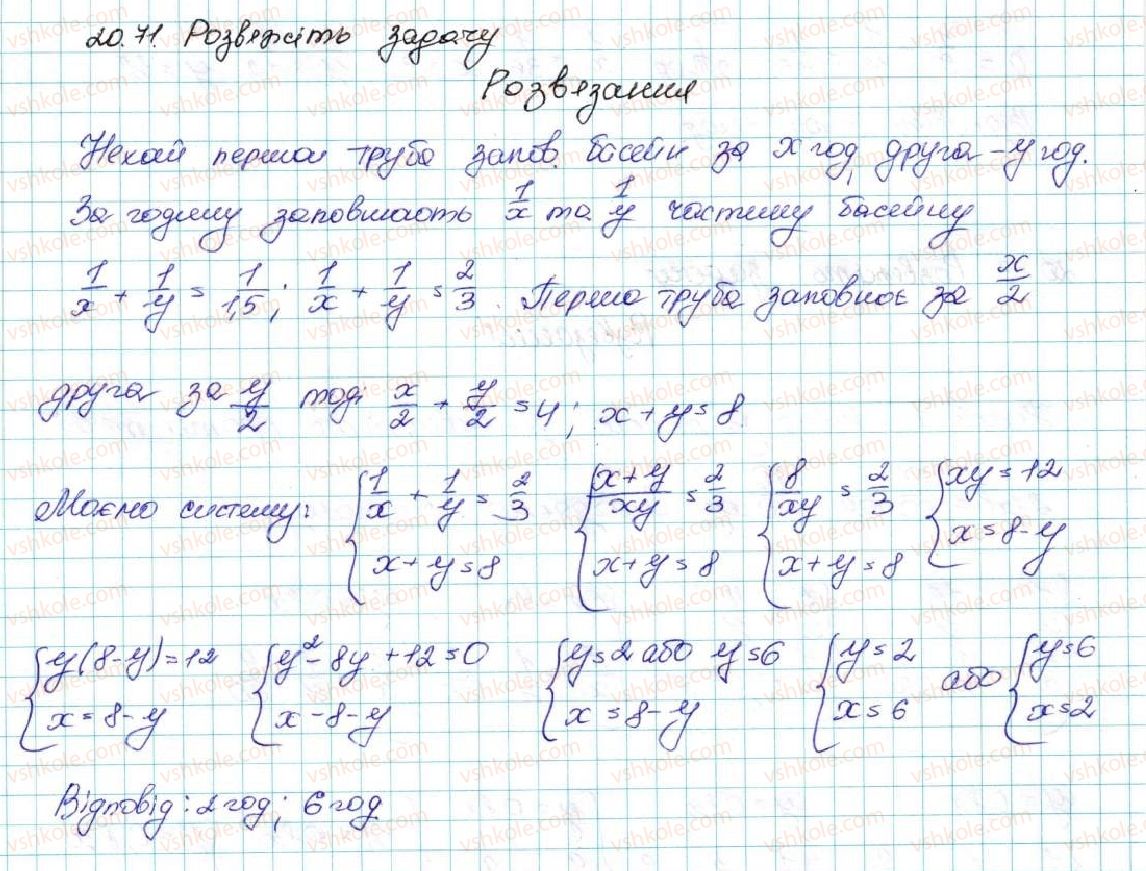 20.71. Розвяжіть задачу
Розвязання
Нехай перша труба запов. басейн за x год, друга – y год.
За годину заповнюють 1/x та 1/y частину басейну
1/x + 1/y = 1/1,5; 1/x + 1/y = 2/3. Перша труба заповнює за x/2
друга за y/2 тоді x/2 + y/2 = 4; x + y = 8.
Маємо систему: { 1/x + 1/y = 2/3 { (x+y)/xy = 2/3 { 8/xy = 2/3 { xy = 12
x + y = 8 x + y = 8 x + y = 8 x = 8 - y
{ y(8-y) = 12 { y² - 8y + 12 = 0 { y = 2 або y = 6 { y = 2 або { y = 6
x = 8 - y x - 8 - y x = 8 - y x = 6 x = 2
Відповід: 2 год; 6 год.